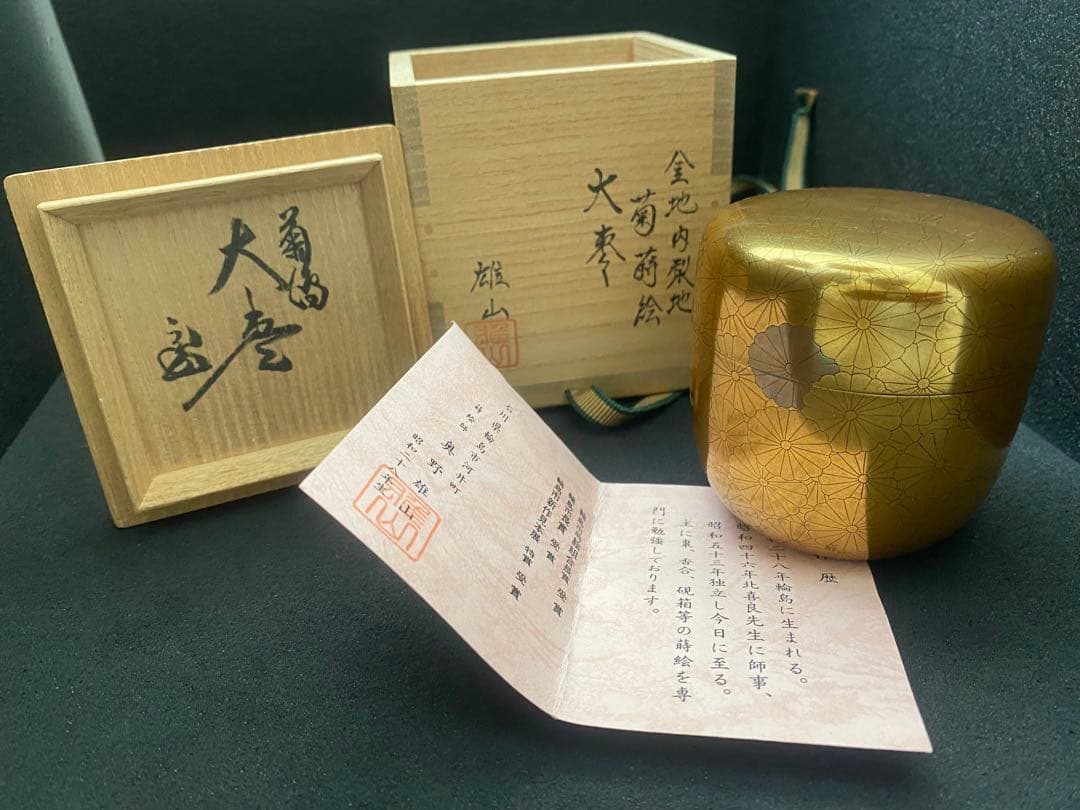 大棗
金地内梨地
菊蒔絵
大棗
雄山
石川県輪島市河井町
蒔絵師 奥野雄山
昭和二十八年生
受賞
輪島市新作見本展 特賞 受賞
歴
二十八年輪島に生まれる。
昭和四十六年北喜良先生に師事、
昭和五十三年独立し今日に至る。
主に棗、香合、硯箱等の蒔絵を専
門に勉強しております。